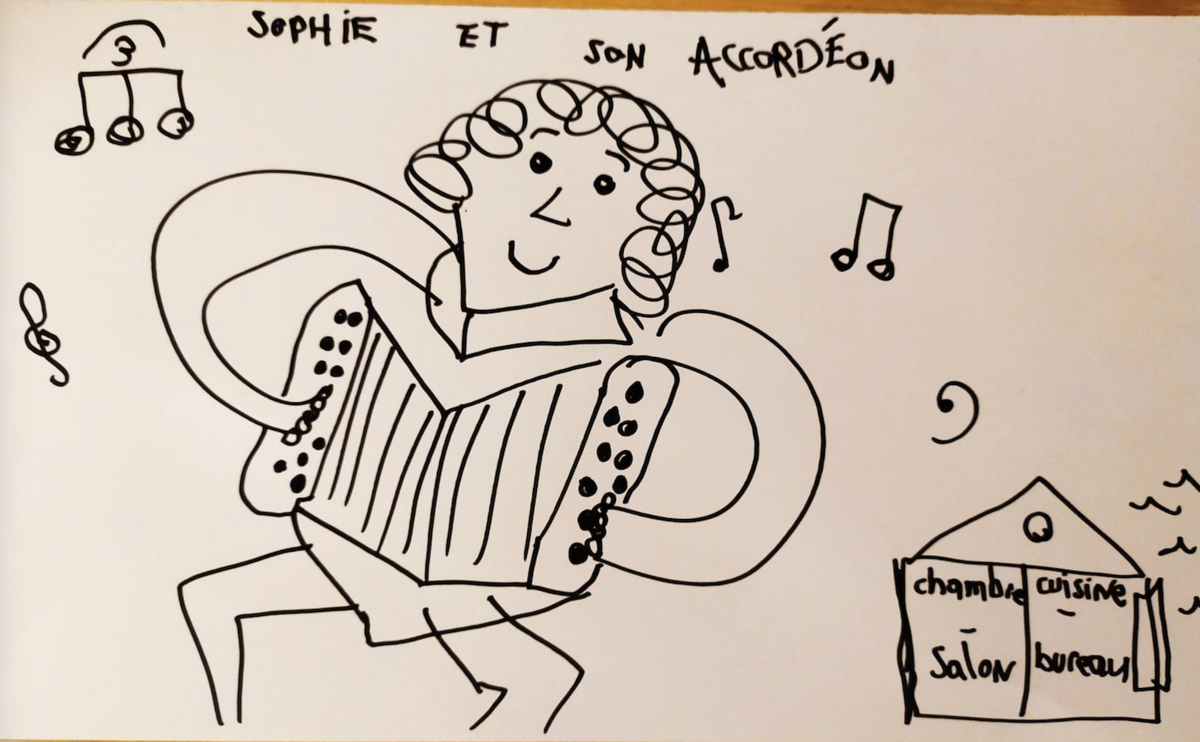 SOPHIE ET SON ACCORDÉON
3
chambre cuisine
- -
Salon bureau